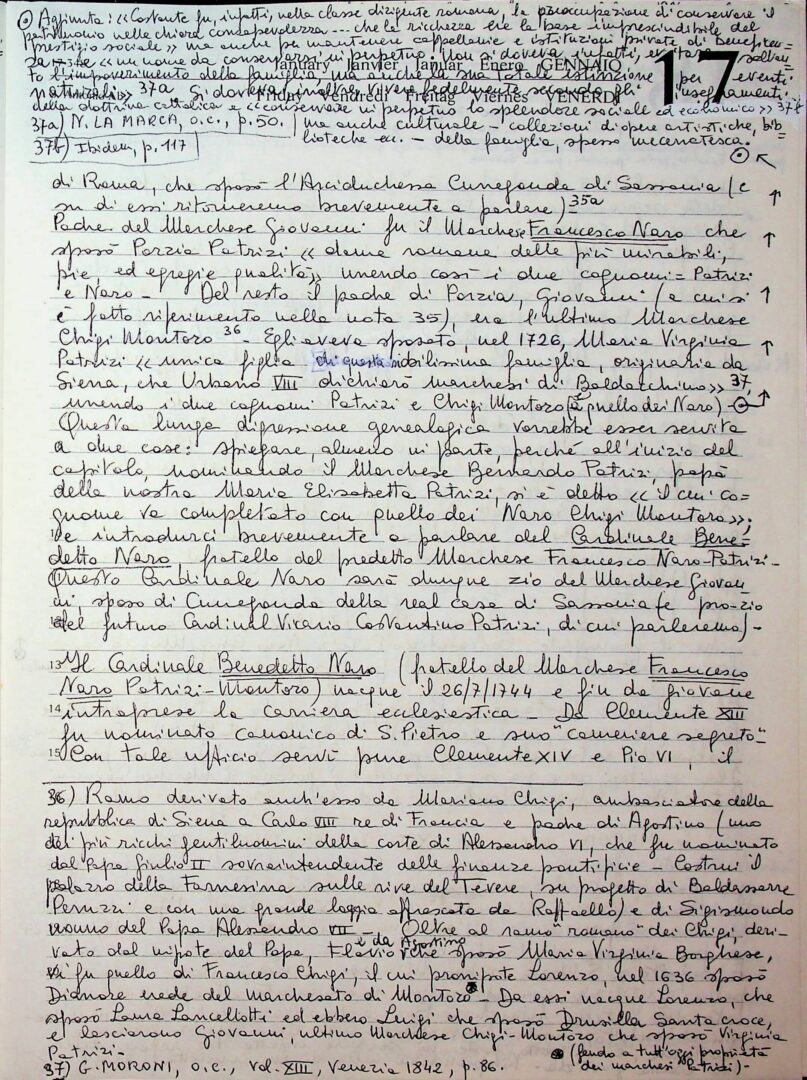 ⊙ Aggiunta: «Costante fu, infatti, nella classe dirigente romana, la preoccupazione di conservare il
patrimonio nella chiara consapevolezza ... che la ricchezza era la base imprescindibile del
prestigio sociale» ma anche per mantenere cappellanie e istituzioni private di beneficen=
za «un nome da conservarsi in perpetuo. Non si doveva, infatti, evitare soltan=
to l'impoverimento della famiglia, ma anche la sua totale estinzione per eventi
naturali» 37a Si doveva, inoltre, vivere fedelmente secondo gli insegnamenti
della dottrina cattolica e «conservare in perpetuo lo splendore sociale ed economico» 37b
January Janvier Januar Enero GENNAIO
Friday Vendredi Freitag Viernes VENERDI
17
37a) N. LA MARCA, o.c., p. 50. ma anche culturale - collezioni di opere artistiche, bib=
37b) Ibidem, p. 117 lioteche ecc. - della famiglia, spesso mecenatesca.
di Roma, che sposò l'Arciduchessa Cunegonda di Sassonia (e
su di essi ritorneremo brevemente a parlare) 35a
Padre del Marchese Giovanni fu il Marchese Francesco Naro che
sposò Porzia Patrizi «dama romana delle più mirabili,
pie, ed egregie qualità», unendo così i due cognomi = Patrizi
e Naro - Del resto il padre di Porzia, Giovanni (a cui si
è fatto riferimento nella nota 35), era l'ultimo Marchese
Chigi Montoro 36 - Egli aveva sposato, nel 1726, Maria Virginia
Patrizi «unica figlia di questa nobilissima famiglia, originaria da
Siena, che Urbano VIII dichiarò marchesi di Baldacchino» 37,
unendo i due cognomi Patrizi e Chigi Montoro (a quello dei Naro) - ⊙
Questa lunga digressione genealogica vorrebbe esser servita
a due cose: spiegare, almeno in parte, perché all'inizio del
capitolo, nominando il Marchese Bernardo Patrizi, papà
della nostra Maria Elisabetta Patrizi, si è detto «il cui co=
gnome va completato con quello dei Naro Chigi Montoro»;
e introdurci brevemente a parlare del Cardinale Bene=
detto Naro, fratello del predetto Marchese Francesco Naro-Patrizi -
Questo Cardinale Naro sarà dunque zio del Marchese Giovan
ni, sposo di Cunegonda della real casa di Sassonia (e pro-zio
del futuro Cardinal Vicario Costantino Patrizi, di cui parleremo) -
13 Il Cardinale Benedetto Naro (fratello del Marchese Francesco
Naro Patrizi-Montoro) nacque il 26/7/1744 e fin da giovane
14 intraprese la carriera ecclesiastica - Da Clemente XIII
fu nominato canonico di S. Pietro e suo "cameriere segreto" -
15 Con tale ufficio servì pure Clemente XIV e Pio VI, il
36) Ramo derivato anch'esso da Mariano Chigi, ambasciatore della
repubblica di Siena a Carlo VIII re di Francia e padre di Agostino (uno
dei più ricchi gentiluomini della corte di Alessandro VI, che fu nominato
dal Papa Giulio II sovraintendente delle finanze pontificie - Costruì il
palazzo della Farnesina sulle rive del Tevere, su progetto di Baldassarre
Peruzzi e con una grande loggia affrescata da Raffaello) e di Sigismondo
nonno del Papa Alessandro VII - Oltre al ramo "romano" dei Chigi, deri-
vato dal nipote del Papa, Flavio e da Agostino che sposò Maria Virginia Borghese,
vi fu quello di Francesco Chigi, il cui pronipote Lorenzo, nel 1636 sposò
Dianora erede del marchesato di Montoro - Da essi nacque Lorenzo, che
sposò Laura Lancellotti ed ebbero Luigi che sposò Drusilla Santacroce,
e lasciarono Giovanni, ultimo Marchese Chigi-Montoro che sposò Virginia
Patrizi - (feudo a tutt'oggi proprietà
37) G. MORONI, o.c., vol. XIII, Venezia 1842, p. 86. dei marchesi Patrizi) -